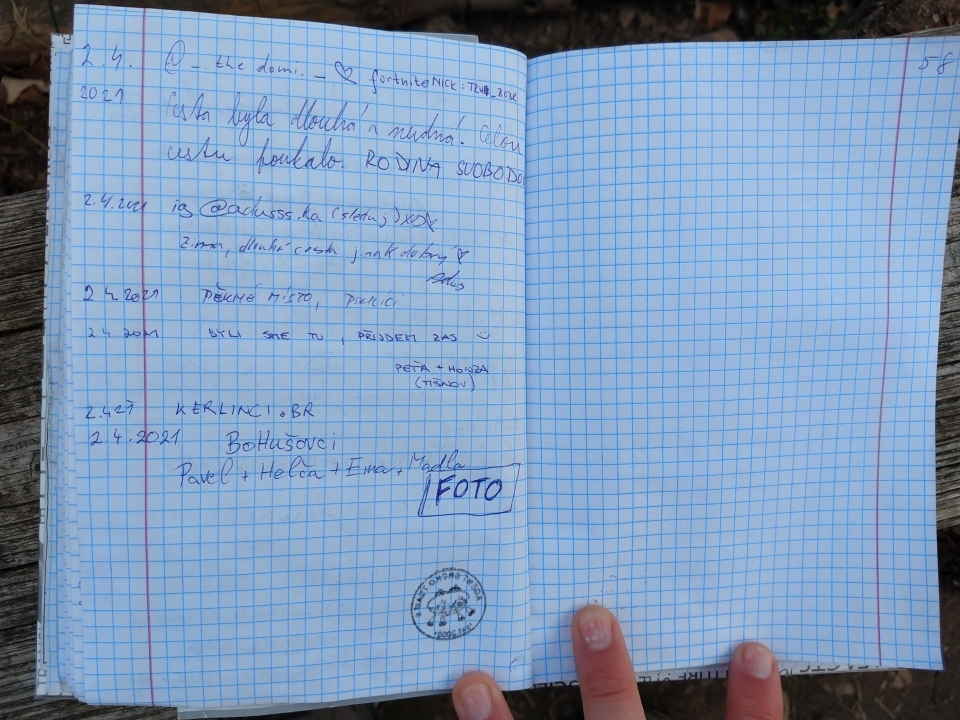 2.4. @_.the domi._ ♡ fortnite NICK:
2021 Cesta byla dlouhá a nudná. Celou
cestu foukalo. RODINA SVOBODO
2.4.2021 ig @adusss.ka (sleduj) XOX
Zima, dlouhá cesta jinak dobrý ♡
Adus
2.4.2021 PĚKNÉ MÍSTO,
2.4.2021 BYLI SME TU, PŘIJDEM ZAS
PEŤA + HONZA
(TIŠNOV)
2.4.21 KERLINCI.BR
2.4.2021 BoHušovci
Pavel + Helča + Ema + Madla
FOTO
58